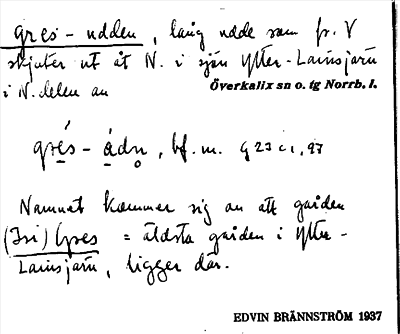 gres - udden, lång udde som fr. V
skjuter ut åt N. i sjön Ytter-Lainsjärv
i N. delen av Överkalix sn o. tg Norrb. l.
grés - ádn̥, bf. m. g 23 c 1, 97
Namnet kommer sig av att gården
(Isi) Gres = äldsta gården i Ytter-
Lainsjärv, ligger där.
EDVIN BRÄNNSTRÖM 1937